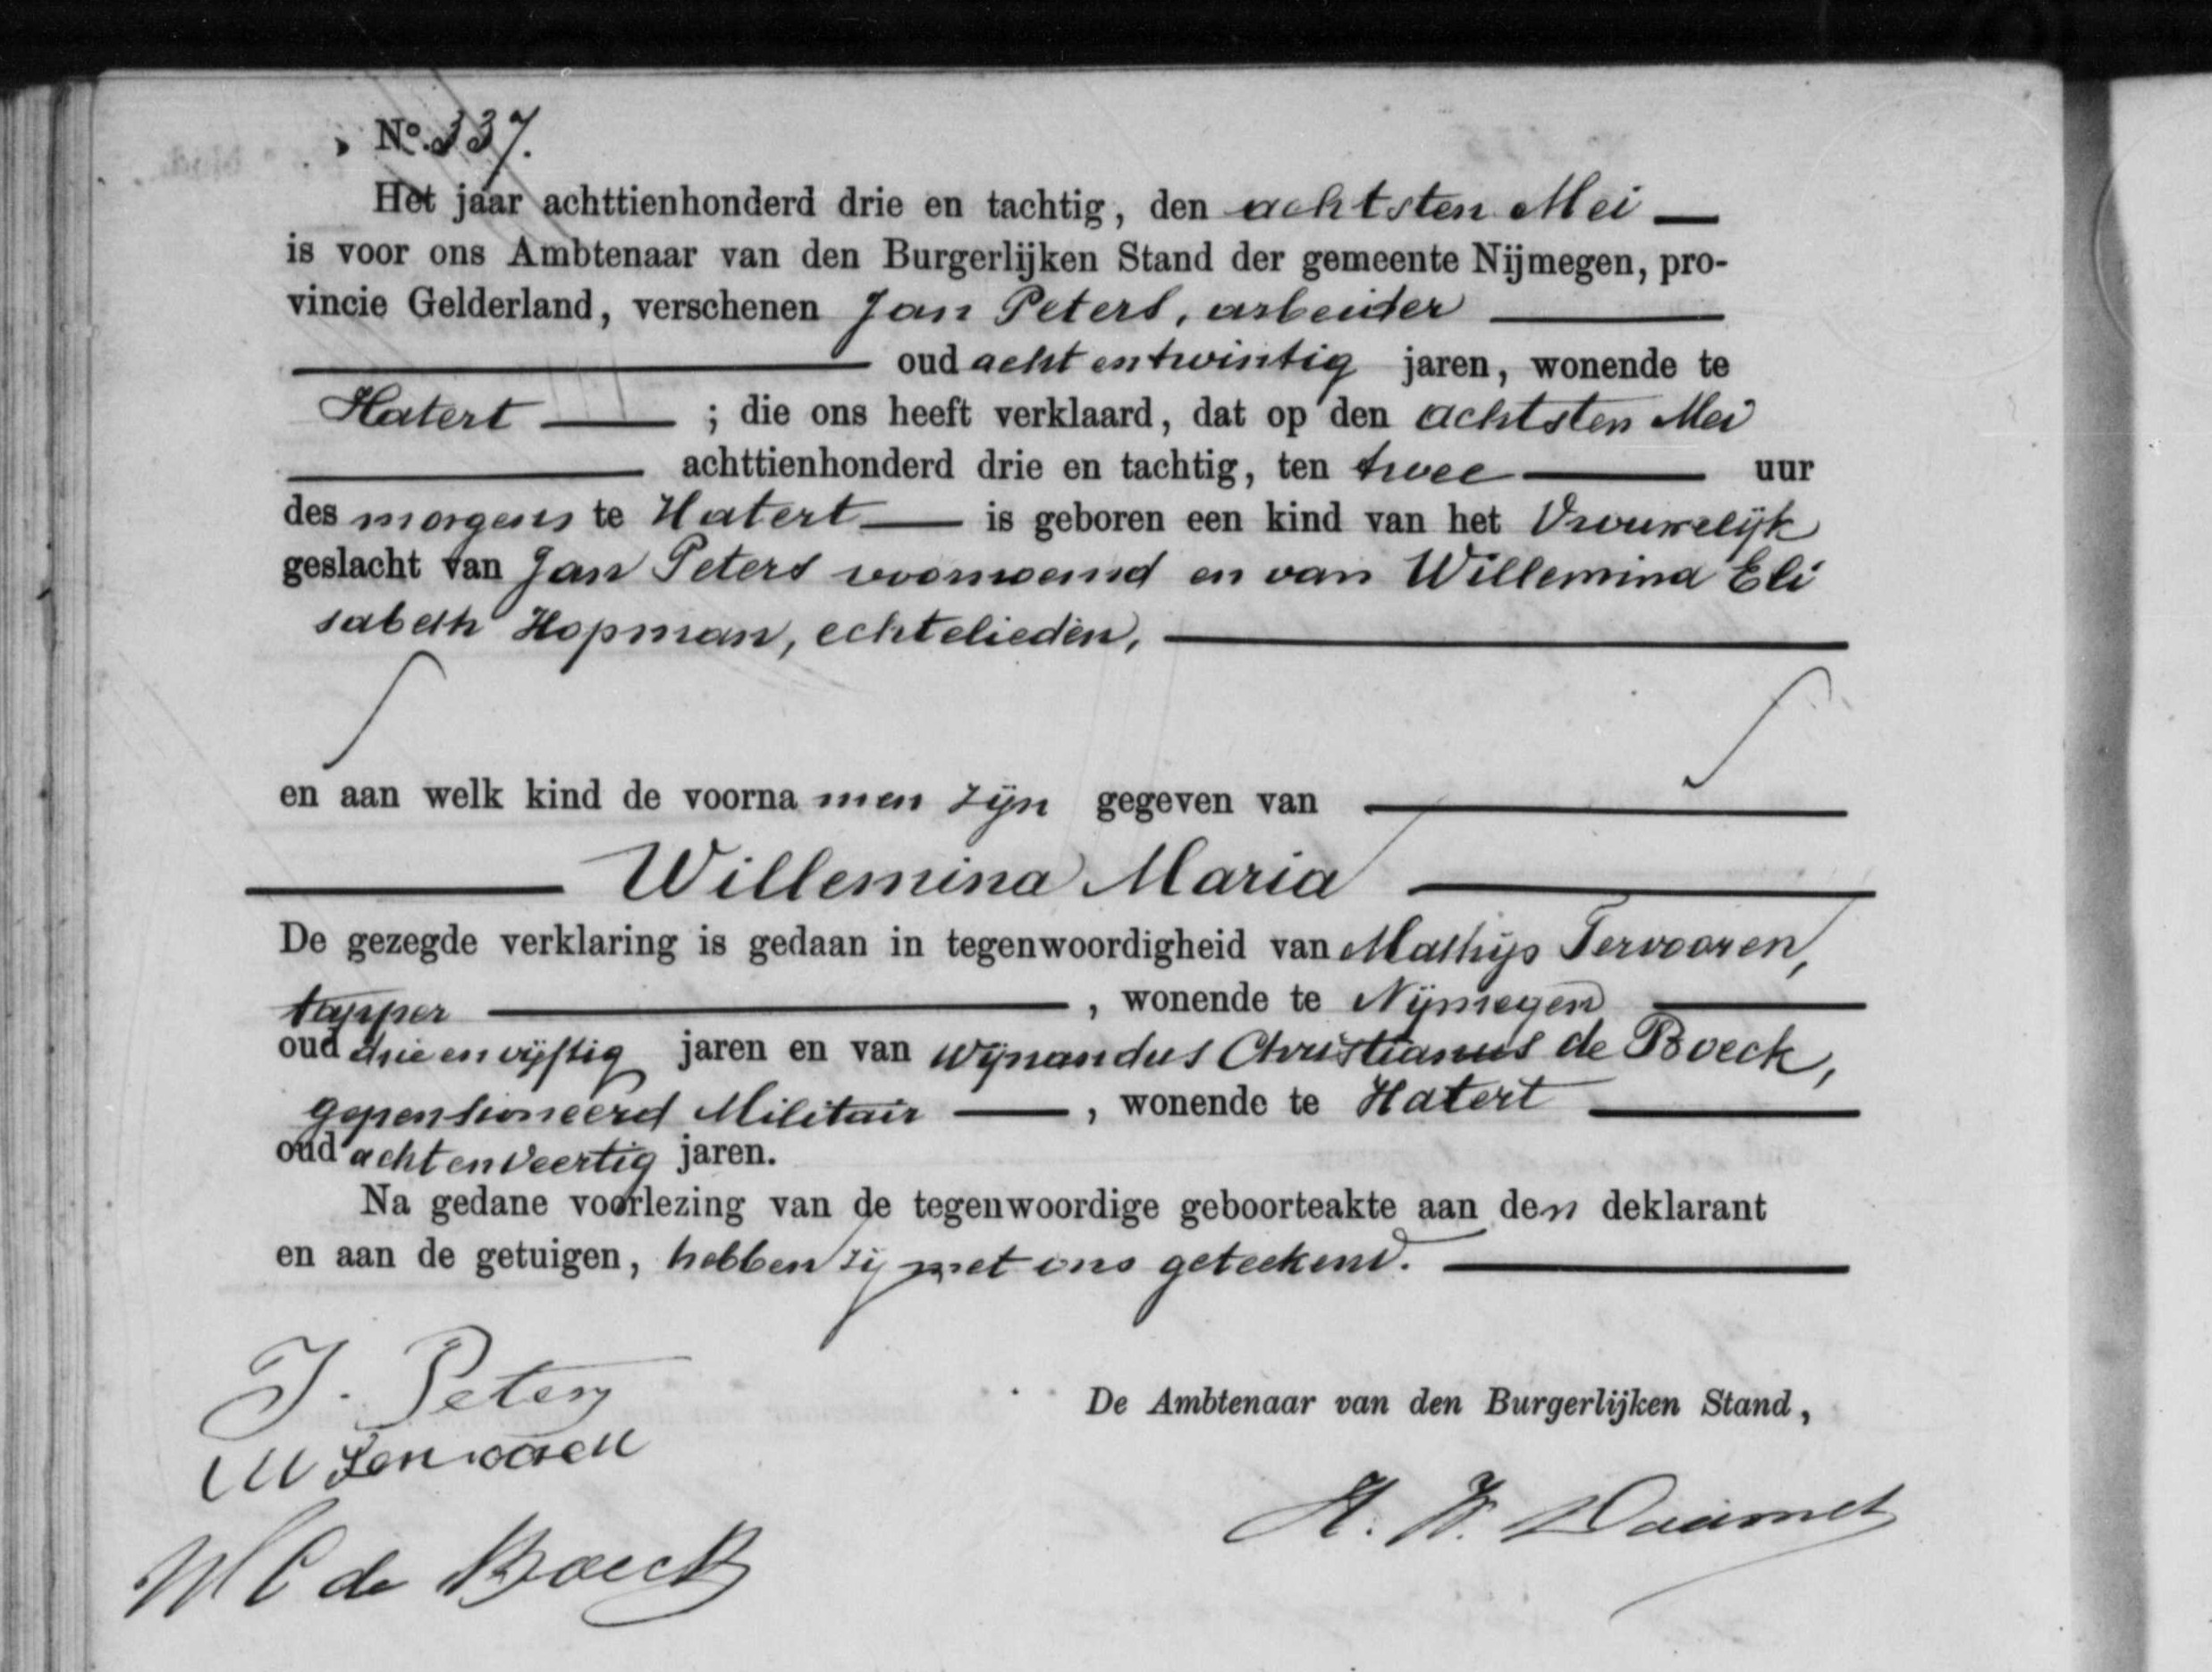 No. 337.
Het jaar achttienhonderd drie en tachtig, den achtsten Mei
is voor ons Ambtenaar van den Burgerlijken Stand der gemeente Nijmegen, pro-
vincie Gelderland, verschenen Jan Peters, arbeider
oud acht en twintig jaren, wonende te
Hatert ; die ons heeft verklaard, dat op den achtsten Mei
achttienhonderd drie en tachtig, ten twee uur
des morgens te Hatert is geboren een kind van het Vrouwelijk
geslacht van Jan Peters voornoemd en van Willemina Eli
sabeth Hopman, echtelieden,
en aan welk kind de voorna men zijn gegeven van
Willemina Maria
De gezegde verklaring is gedaan in tegenwoordigheid van Mathijs Tervooren,
tapper , wonende te Nijmegen
oud drie en vijftig jaren en van Wijnandus Christianus de Boeck,
gepensioneerd Militair , wonende te Hatert
oud acht en veertig jaren.
Na gedane voorlezing van de tegenwoordige geboorteakte aan den deklarant
en aan de getuigen, hebben zij met ons geteekend.
J. Peters
De Ambtenaar van den Burgerlijken Stand,
M
W C de Boeck
H. W.